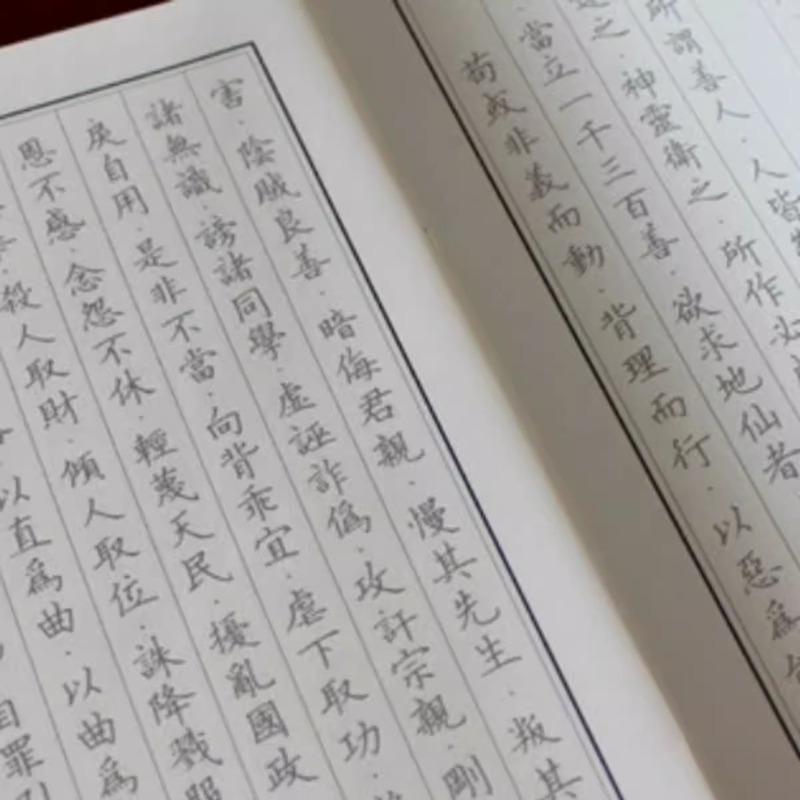 所謂善人·人皆
之·神靈衛之·所作必
當立一千三百善·欲求地仙者
苟或非義而動·背理而行·以惡爲
害·陰賊良善·暗侮君親·慢其先生·叛其
諸無識·謗諸同學·虛誣詐僞·攻訐宗親·剛
戾自用·是非不當·向背乖宜·虐下取功·
恩不感·念怨不休·輕蔑天民·擾亂國政
殺人取財·傾人取位·誅降戮服
以直爲曲·以曲爲
自罪引